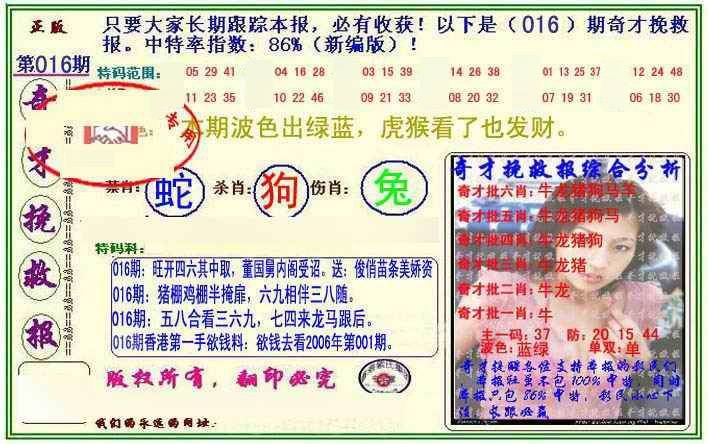 正版
只要大家长期跟踪本报，必有收获！以下是（016）期奇才挽救
报。中特率指数：86%（新编版）！
第016期
特码范围：
05 29 41 04 16 28 03 15 39 14 26 38 01 13 25 37 12 24 48
11 23 35 10 22 46 09 21 33 08 20 32 07 19 31 06 18 30
专用
色：本期波色出绿蓝，虎猴看了也发财。
奇才挽救报
禁肖：蛇 杀肖：狗 伤肖：兔
特码料：
016期：旺开四六其中取，董国舅内阁受诏。送：俊俏苗条美娇资
016期：猪棚鸡棚半掩扉，六九相伴三八随。
016期：五八合看三六九，七四来龙马跟后。
016期香港第一手欲钱料：欲钱去看2006年第001期。
版权所有，翻印必究
我们的永远的网址：
奇才挽救报综合分析
奇才批六肖：牛龙猪狗马羊
奇才批五肖：牛龙猪狗马
奇才批四肖：牛龙猪狗
奇才批三肖：牛龙猪
奇才批二肖：牛龙
奇才批一肖：牛
主一码：37 防：20 15 44
波色：蓝绿 单双：单
奇才挽救各位支持本报的彩民们
本报社虽不包100%中特，同时
本报只包86%中特，彩民小心下
注，长跟必赢